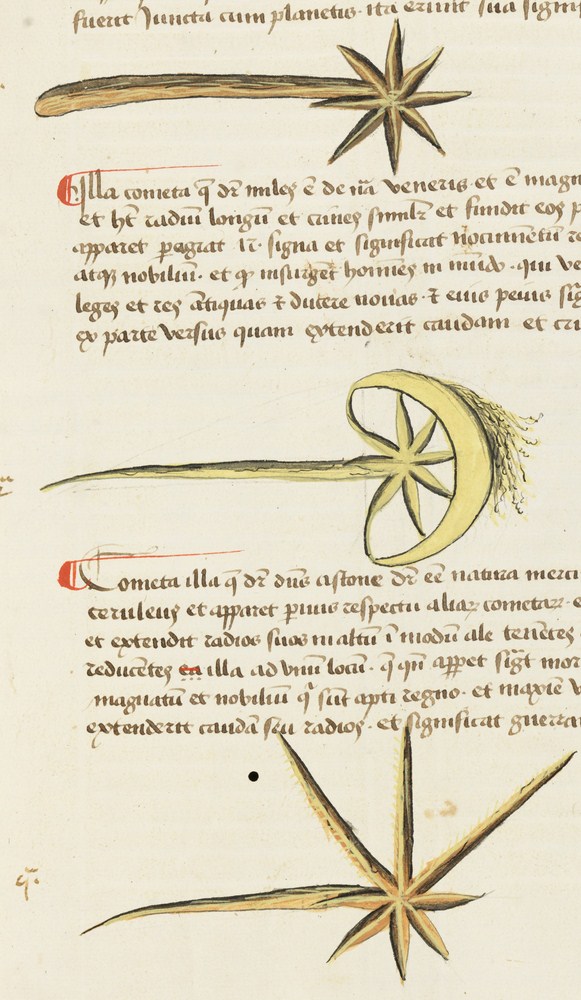 fuerit Juncta cum planetis. ita erunt sua signif
Illa cometa q̄ dr̄ miles ē de nā veneris. et ē magn
et ht̄ radiū longū et crines simlr̄ et fundit eos p
apparet pagrat 12. signa et significat nocumentū re
atqꝫ nobiliū. et ꝙ insurgēt homīes in mūdo. qui ve
leges et res ātiquas ⁊ ducere nouas. ⁊ eius peius sig
ex parte versus quam extenderit caudam et cri
Cometa illa q̄ dr̄ dn̄s astone dr̄ eē natura mercu
ceruleus et apparet puus respectu aliaꝝ cometaꝝ. e
et extendit radios suos in altū ī modū ale tenētes
reducētes ea illa ad vnū locū. q̄ qn̄ appet sigt mor
magnatū et nobiliū q̄ sūt apti regno. et maxīe v
extenderit caudā seu radios. et significat guerra